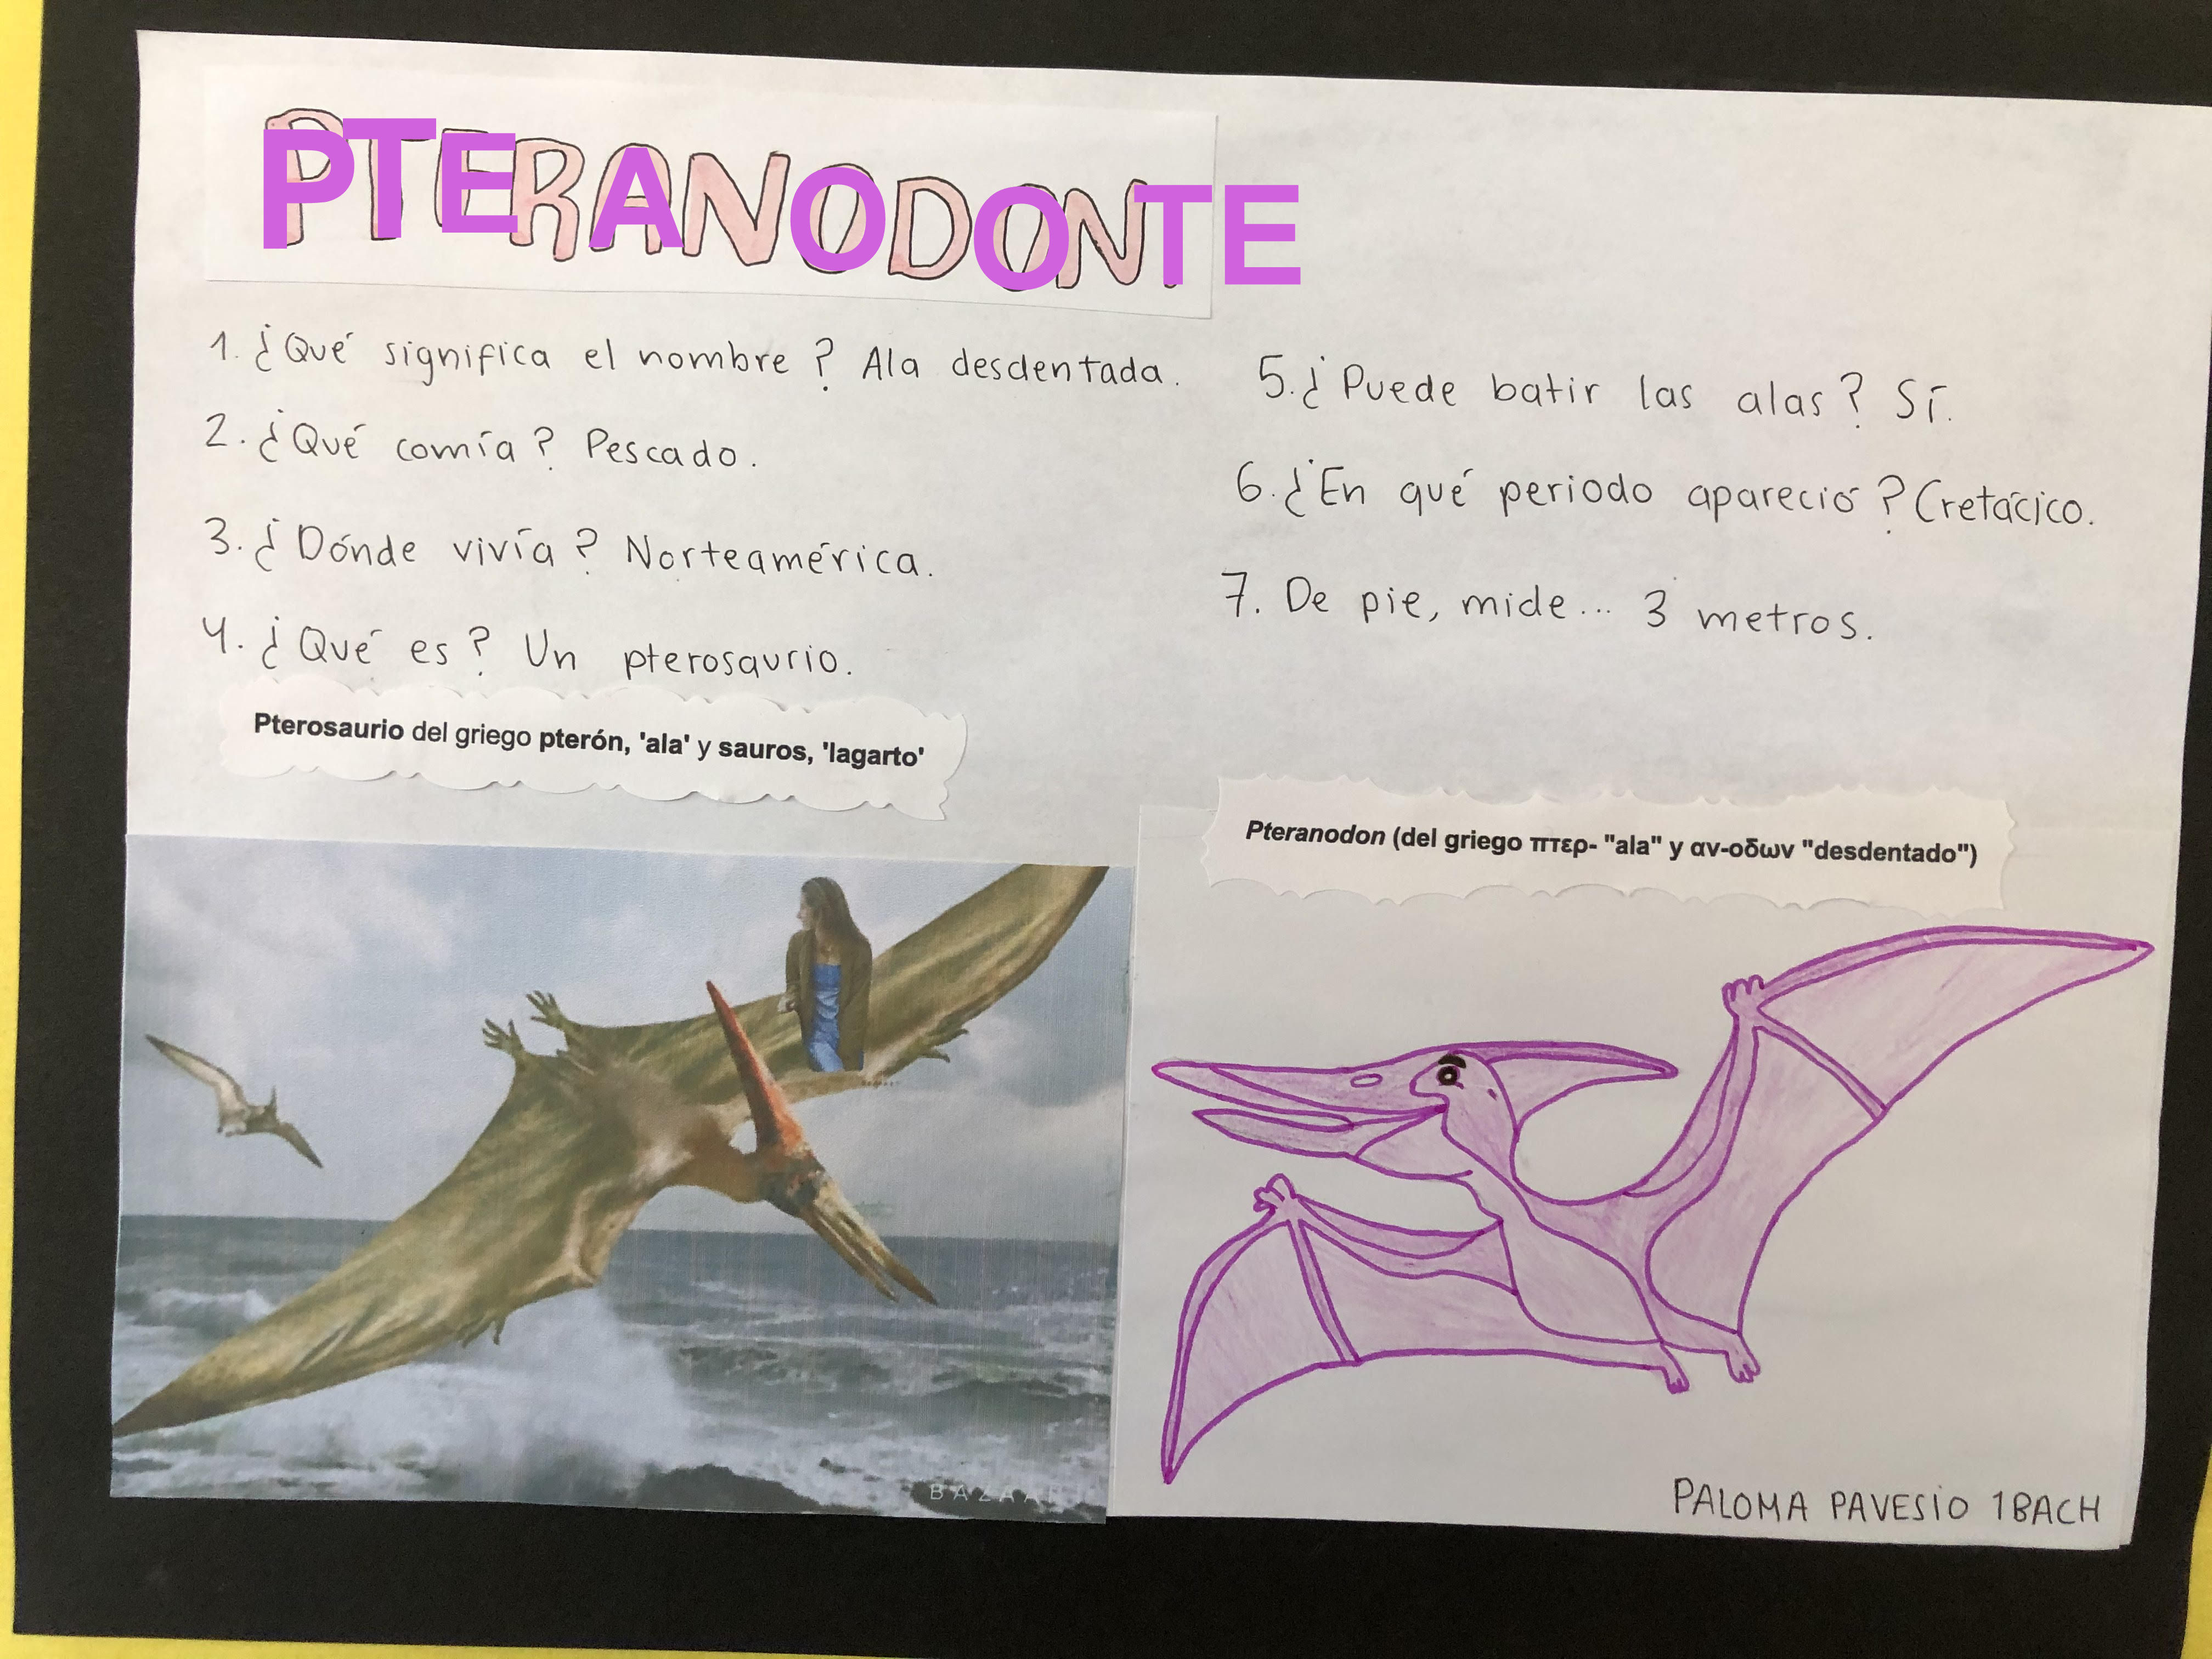 PTERANODONTE
1. ¿Qué significa el nombre? Ala desdentada.
2. ¿Qué comía? Pescado.
3. ¿Dónde vivía? Norteamérica.
4. ¿Qué es? Un pterosaurio.
Pterosaurio del griego pterón, 'ala' y sauros, 'lagarto'
5. ¿Puede batir las alas? Sí.
6. ¿En qué periodo apareció? Cretácico.
7. De pie, mide... 3 metros.
Pteranodon (del griego πτερ- "ala" y αν-οδων "desdentado")
PALOMA PAVESIO 1BACH